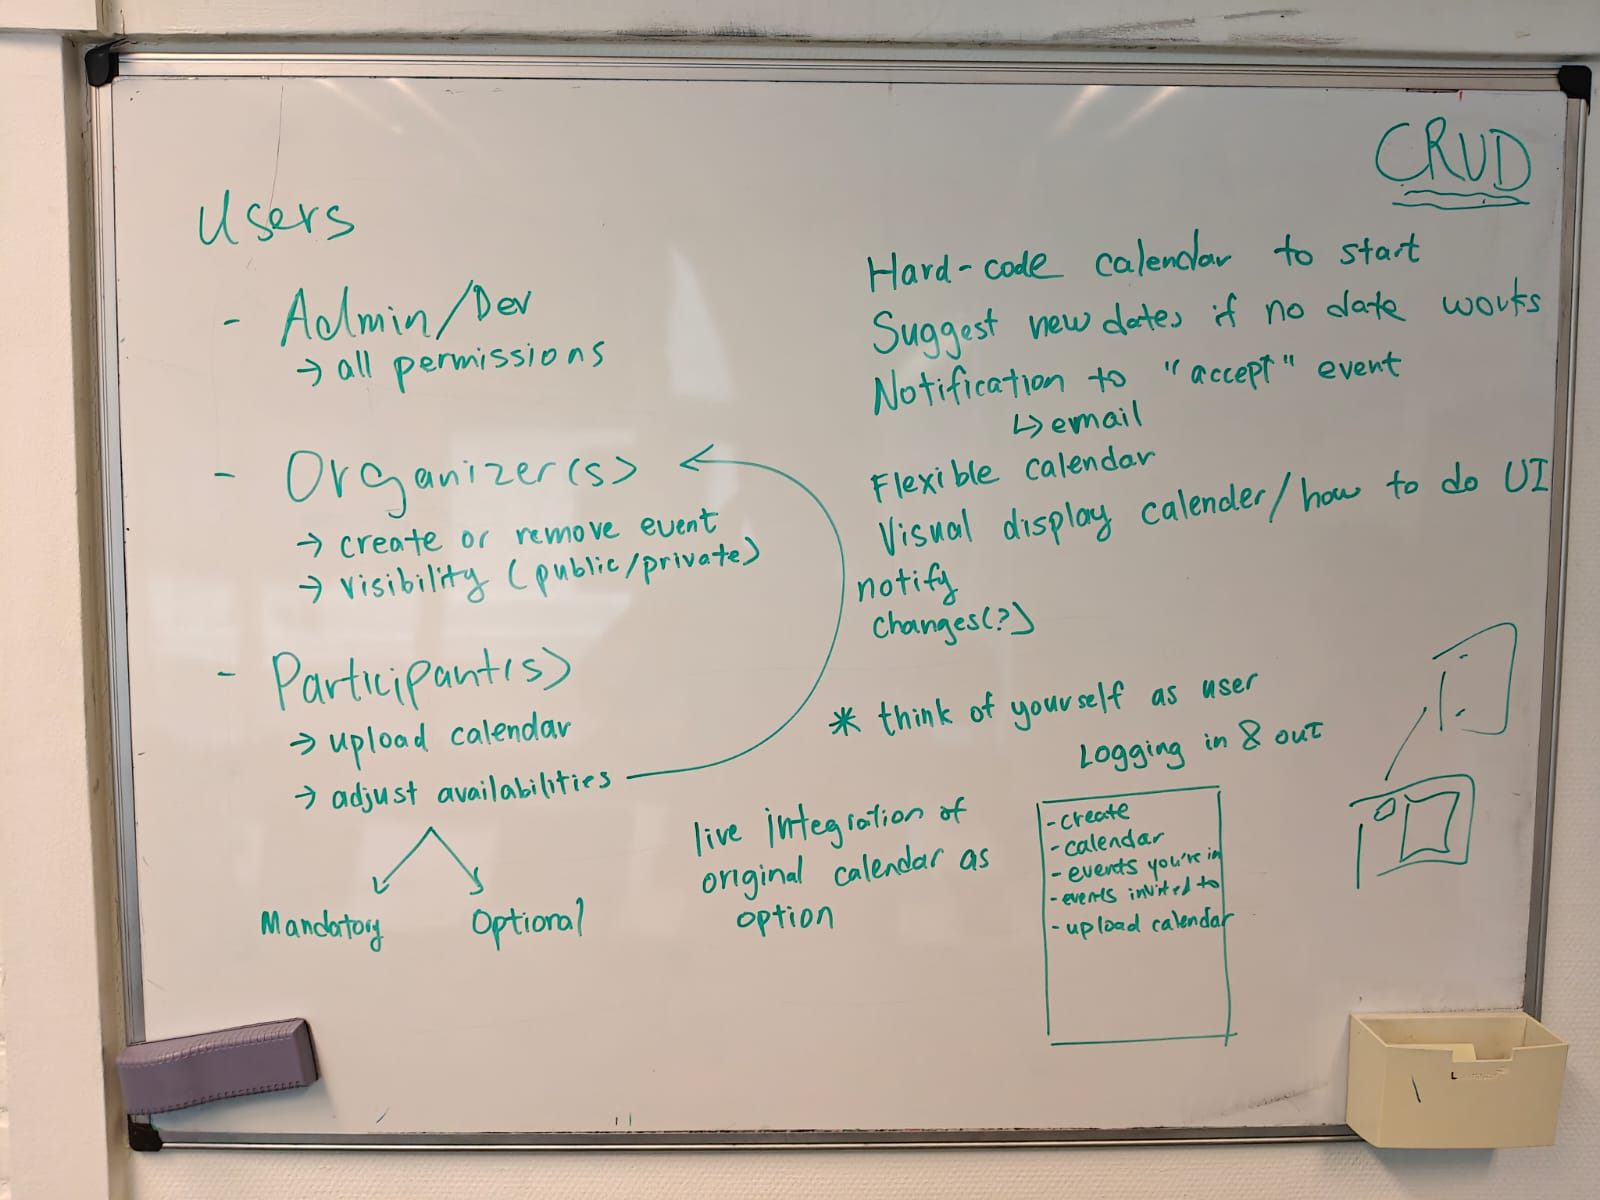 CRUD
Users
- Admin/Dev
→ all permissions
- Organizer(s)
→ create or remove event
→ visibility (public/private)
- Participant(s)
→ upload calendar
→ adjust availabilities
Mandatory
Optional
Hard-code calendar to start
Suggest new dates if no date works
Notification to "accept" event
↳ email
Flexible calendar
Visual display calender/how to do UI
notify
changes(?)
* think of yourself as user
Logging in & out
live integration of
original calendar as
option
- create
- calendar
- events you're in
- events invited to
- upload calendar